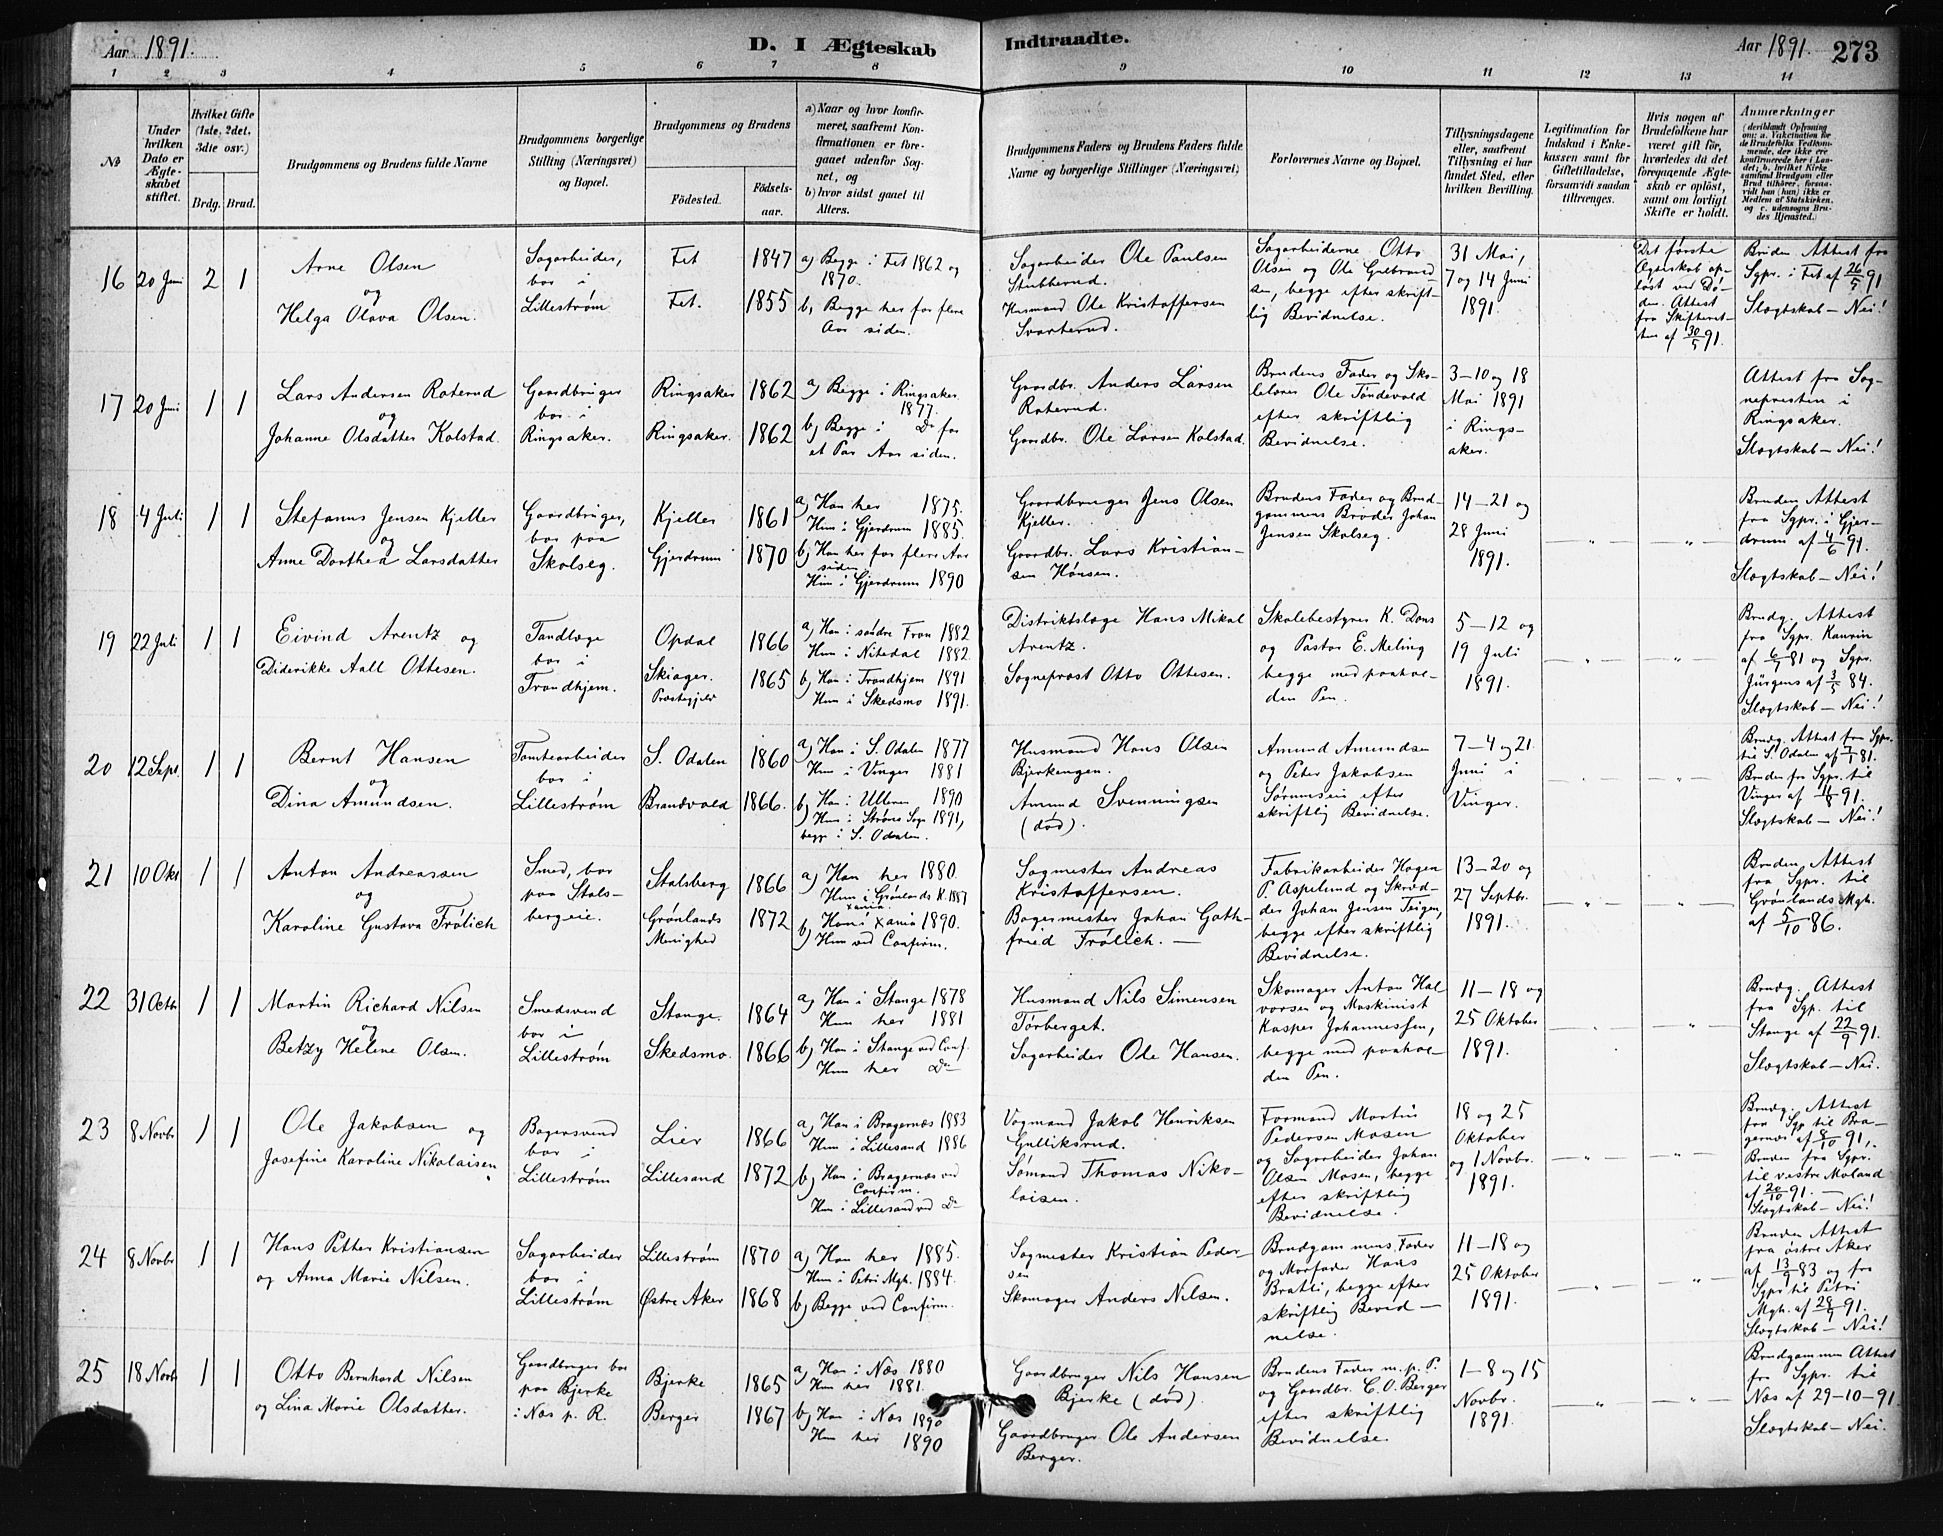 Aar 1891.
D. I Ægteskab Indtraadte.
Aar 1891. 273
1 2 3 4 5 6 7 8 9 10 11 12 13 14
№
Under hvilken Dato er Ægteskabet stiftet.
Hvilket Gifte (1ste, 2det, 3die osv.)
Brdg. Brud.
Brudgommens og Brudens fulde Navne
Brudgommens borgerlige Stilling (Næringsvei) og Bopæl.
Brudgommens og Brudens
Födested. Födselsaar.
a) Naar og hvor konfirmeret, saafremt Konfirmationen er foregaaet udenfor Sognet, og
b) hvor sidst gaaet til Alters.
Brudgommens Faders og Brudens Faders fulde Navne og borgerlige Stillinger (Næringsvei)
Forlovernes Navne og Bopæl.
Tillysningsdagene eller, saafremt Tillysning ei har fundet Sted, efter hvilken Bevilling.
Legitimation for Indskud i Enkekassen samt for Giftetilladelse, forsaavidt saadan tiltrænges.
Hvis nogen af Brudefolkene har været gift för, hvorledes da det foregaaende Ægteskab er oplöst, samt om lovligt Skifte er holdt.
Anmærkninger
(deriblandt Oplysning om: a. Vakcination for de Brudefolks Vedkommende, der ikke ere konfirmerede her i Landet; b. hvilket Kirkesamfund Brudgom eller Brud tilhörer, forsaavidt han (hun) ikke er Medlem af Statskirken, og c. udensogns Brudes Hjemsted.)
16 20 Juni 2 1
Arne Olsen
og
Helga Olava Olsen.
Sagarbeider,
bor i
Lillestrøm
Fet 1847
Fet. 1855
a) Begge i Fet 1862 og
1870.
b, Begge her for flere
Aar siden.
Sagarbeider Ole Paulsen
Stubberud.
Husmand Ole Kristoffersen
Svarterud.
Sagarbeiderne Otto
Olsen og Ole Gulbrandsen, begge efter skriftlig Bevidnelse.
31 Mai,
7 og 14 Juni
1891.
Det første
Ægteskab opløst ved Døden. Attest
fra Skifteretten af 30/5 91.
Bruden Attest fra
Sgpr. i Fet af 26/5 91
Slægtskab – Nei!
17 20 Juni 1 1
Lars Andersen Roterud
og
Johanne Olsdatter Kolstad.
Gaardbruger
bor i
Ringsaker.
Ringsaker 1862
Ringsaker. 1862
a) Begge i Ringsaker
1877.
b) Begge i Do for
et Par Aar siden.
Gaardbr. Anders Larsen
Roterud.
Gaardbr. Ole Larsen Kolstad.
Brudens Fader og Skolelærer Ole Tandevold
efter skriftlig
Bevidnelse.
3–10 og 18
Mai 1891
i Ringsaker.
Attest fra Sognepresten i
Ringsaker.
Slægtskab – Nei!
18 4 Juli 1 1
Stefanus Jensen Kjeller
og
Anne Dorthea Larsdatter
Gaardbruger,
bor paa
Skolseg.
Kjeller 1861
Gjerdrum 1870
a) Han her 1875.
Hun i Gjerdrum 1885.
b) Han her for flere Aar
siden
Hun i Gjerdrum 1890
Gaardbruger Jens Olsen
Kjeller.
Gaardbr. Lars Kristiansen Hønsen.
Brudens Fader og Brudgommens Broder Johan
Jensen Skolseg.
14–21 og
28 Juni
1891.
Bruden Attest
fra Sgpr. i Gjerdrum af 4/6 91.
Slægtskab – Nei!
19 22 Juli 1 1
Eivind Arentz og
Diderikke Aall Ottesen.
Tandlæge
bor i
Trondhjem.
Opdal 1866
Skiager. Prestegjeld 1865
a) Han i søndre Fron 1882
Hun i Nitedal 1882.
b) Han i Trondhjem 1891
Hun i Skedsmo 1891.
Distriktslæge Hans Mikal
Arentz.
Sogneprost Otto Ottesen.
Skolebestyrer K. Dons
og Pastor E. Meling
begge med paaholden Pen.
5–12 og
19 Juli
1891.
Brudg. Attest
fra Sgpr. Kanrin
af 6/7 81 og Sgpr.
Jürgens af 3/5 84.
Slægtskab – Nei!
20 12 Sept. 1 1
Bernt Hansen
og
Dina Amundsen.
Tomtearbeider
bor i
Lillestrøm
S. Odalen 1860
Brandvold 1866.
a) Han i S. Odalen 1877
Hun i Vinger 1881
b) Han i Ulleren 1890
Hun i Strøms Sogn 1891,
begge i S. Odalen.
Husmand Hans Olsen
Bjerkengen.
Amund Svenningsen
(død).
Amund Amundsen
og Peter Jakobsen
Sørumseie efter
skriftlig Bevidnelse.
7–4 og 21
Juni i
Vinger.
Brudg. Attest fra Sgpr.
til S. Odalen af 7/1 81.
Bruden fra Sgpr. til
Vinger af 11/8 91.
Slægtskab – Nei!
21 10 Okt 1 1
Anton Andreassen
og
Karoline Gustava Frølich
Smed, bor
paa Stalsbergeie.
Stalsberg 1866
Grønlands
Menighed 1872
a) Han her 1880.
Hun i Grønlands K. 1887
Xania.
b) Han i Xania 1890.
Hun ved Confirm.
Sagmester Andreas
Kristoffersen.
Bagermester Johan Gothfried Frølich. —
Fabrikarbeider Hagen
P. Aspelund og Skrædder Johan Jensen Teigen,
begge efter skriftlig
Bevidnelse.
13–20 og
27 Septbr.
1891.
Bruden, Attest
fra Sgpr. til
Grønlands Mgh.
af 5/10 86.
22 31 Octbr 1 1
Martin Richard Nilsen
og
Betzy Helene Olsen.
Smedsvend
bor i
Lillestrøm
Stange. 1864
Skedsmo. 1866
a) Han i Stange 1878
Hun her 1881
b) Han i Stange ved Conf.
Hun her Do
Husmand Nils Simensen
Tørberget.
Sagarbeider Ole Hansen.
Skomager Anton Halvorsen og Maskinist
Kasper Johannessen,
begge med paaholden Pen.
11–18 og
25 Oktober
1891.
Brudg. Attest
fra Sgpr. til
Stange af 22/9 91.
Slægtskab – Nei.
23 8 Novbr 1 1
Ole Jakobsen og
Josefine Karoline Nikolaisen
Bagersvend
bor i
Lillestrøm
Lier 1866
Lillesand 1872
a) Han i Bragernæs 1883
Hun i Lillesand 1886
b) Han i Bragernæs ved
Confirm.
Hun i Lillesand ved Do
Vognmand Jakob Henriksen
Gulliksrud.
Sømand Thomas Nikolaisen.
Formand Martin
Pedersen Mosen
og Sagarbeider Johan
Olsen Mosen, begge
efter skriftlig
Bevidnelse.
18 og 25
Oktober
og 1 Novbr.
1891.
Brudg. Attest
fra Sgp til Bragernes af 8/10 91,
Bruden fra Sgpr.
til vestre Moland
af 20/10 91. —
Slægtskab – Nei!
24 8 Novbr 1 1
Hans Petter Kristiansen
og Anna Marie Nilsen.
Sagarbeider
bor i
Lillestrøm
Lillestrøm 1870
Østre Aker 1868
a) Han her 1885.
Hun i Petri Mgh. 1884.
b) Begge ved Confirm.
Sagmester Kristian Pedersen
Skomager Anders Nilsen.
Brudgommens Fader
og Morfader Hans
Bratli, begge efter
skriftlig Bevidnelse.
11–18 og
25 Oktober
1891.
Bruden Attest
fra østre Aker
af 13/9 83 og fra
Sgpr til Petri
Mgh. af 28/9 91.
Slægtskab – Nei!
25 18 Novbr 1 1
Otto Bernhard Nilsen
og Lina Marie Olsdatter.
Gaardbruger bor
paa Bjerke
i Næs p. R.
Bjerke 1865
Berger 1867
a) Han i Næs 1880
Hun her 1881.
b) Han i Næs 1890
Hun her 1890
Gaardbruger Nils Hansen
Bjerke (død).
Gaardbruger Ole Andersen
Berger.
Brudens Fader m. p. P.
og Gaardbr. C. O. Berger
efter skriftlig
Bevidnelse.
1–8 og 15
Novbr.
1891.
Brudgommen Attest
fr Sgpr. til
Næs af 29–10–91
Slægtskab – Nei.